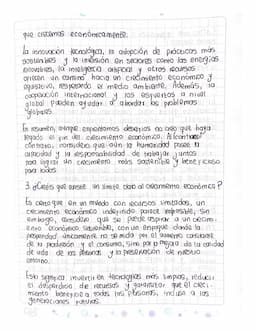 que crezcamos económicamente.
La innovación tecnológica, la adopción de prácticas más
sostenibles y la inversión en sectores como las energías
renovables, la inteligencia artificial y otros recursos
ofrecen un camino hacia un crecimiento económico y
equitativo, respetando el medio ambiente. Además, la
cooperación internacional y los esfuerzos a nivel
global pueden ayudar a abordar los problemas
globales.
En resumen, aunque enfrentamos desafíos no creo que haya
llegado el fin del crecimiento económico. Al contrario,
considero que aún la humanidad posee la
capacidad y la responsabilidad de trabajar juntos
para lograr un crecimiento más sostenible y beneficioso
para todos.
3. ¿Crees que existe un límite claro al crecimiento económico?
Es cierto que en un mundo con recursos limitados, un
crecimiento económico indefinido parece imposible, sin
embargo, considero que se puede aspirar a un crecimi-
ento económico sostenible, con un enfoque donde la
prosperidad únicamente no se mida por el aumento constante
de la producción y el consumo, sino por la mejora de la calidad
de vida de las personas y la preservación de nuestro
entorno.
Esto significa invertir en tecnologías más limpias, reducir
el desperdicio de recursos y garantizar que el creci-
miento beneficie a todas las personas, incluso a las
generaciones futuras.